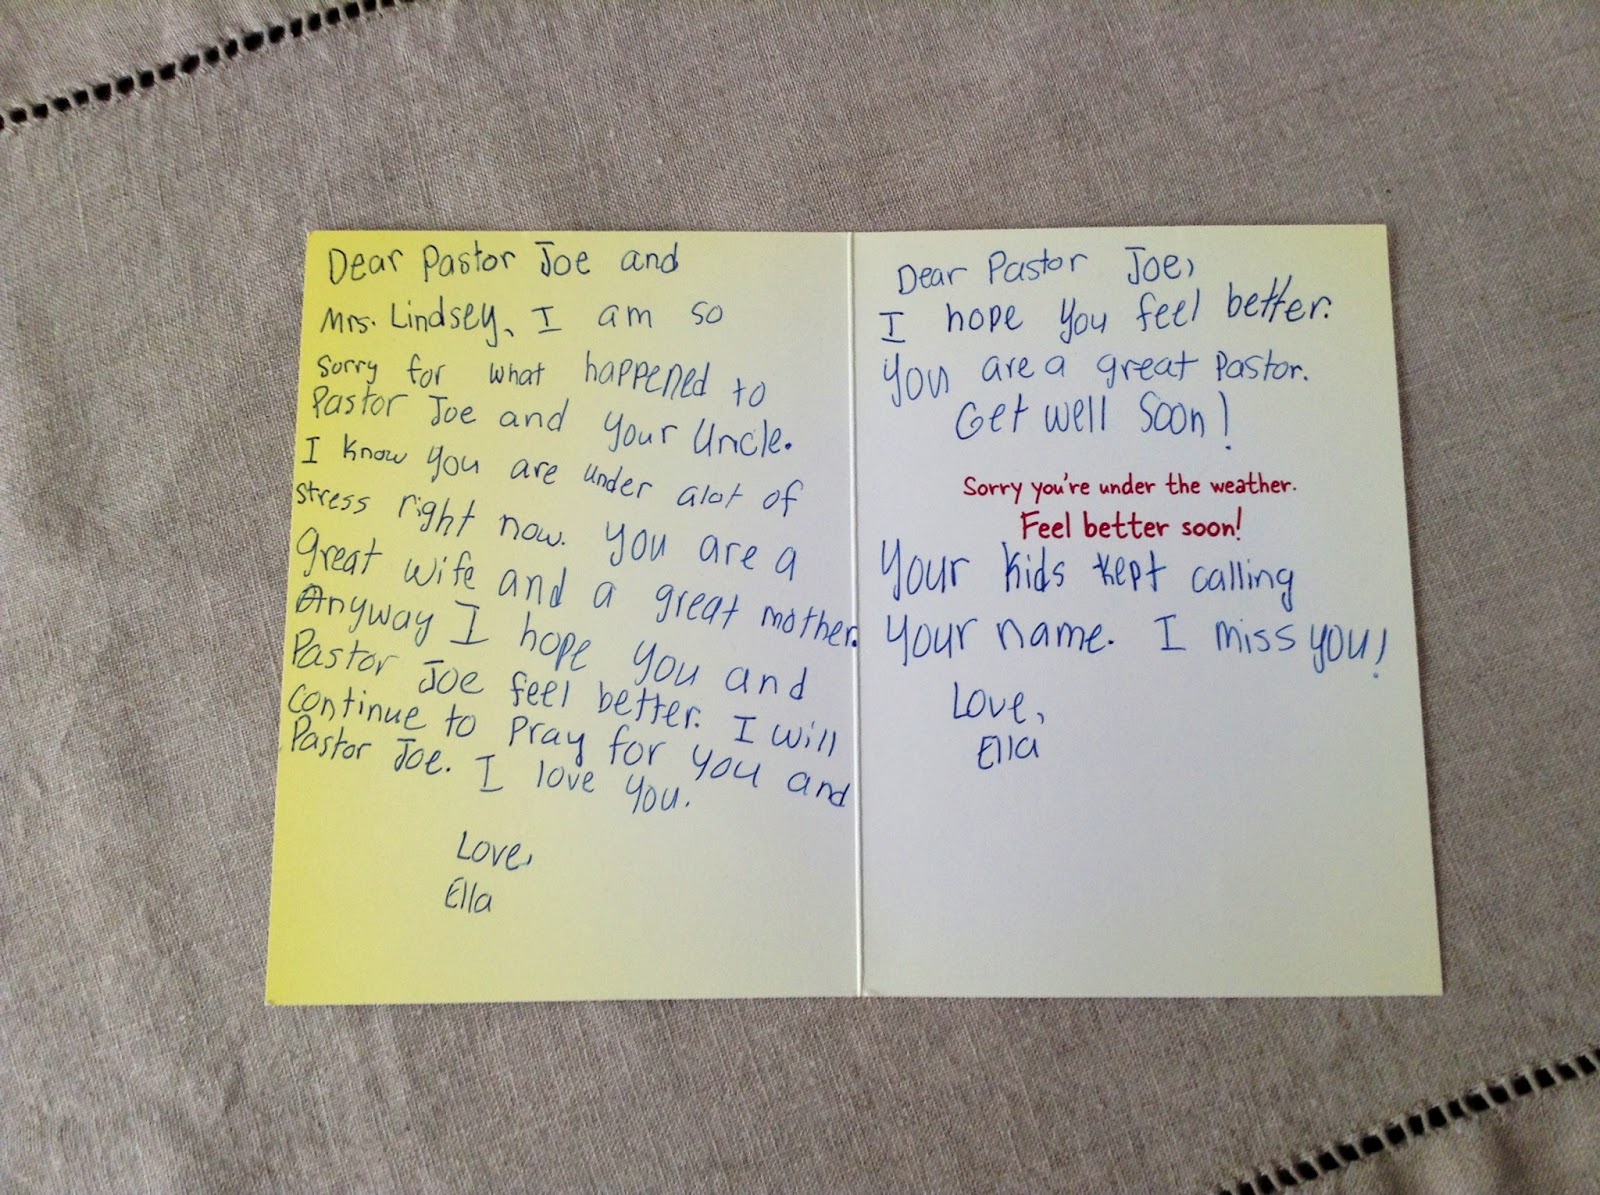 Dear Pastor Joe and
Mrs. Lindsey, I am so
sorry for what happened to
Pastor Joe and your Uncle.
I know you are under alot of
stress right now. You are a
great wife and a great mother.
Anyway I hope you and
Pastor Joe feel better. I will
continue to pray for you and
Pastor Joe. I love you.
Love,
Ella
Dear Pastor Joe,
I hope you feel better.
You are a great Pastor.
Get well Soon!
Sorry you're under the weather.
Feel better soon!
Your kids kept calling
your name. I miss you!
Love,
Ella